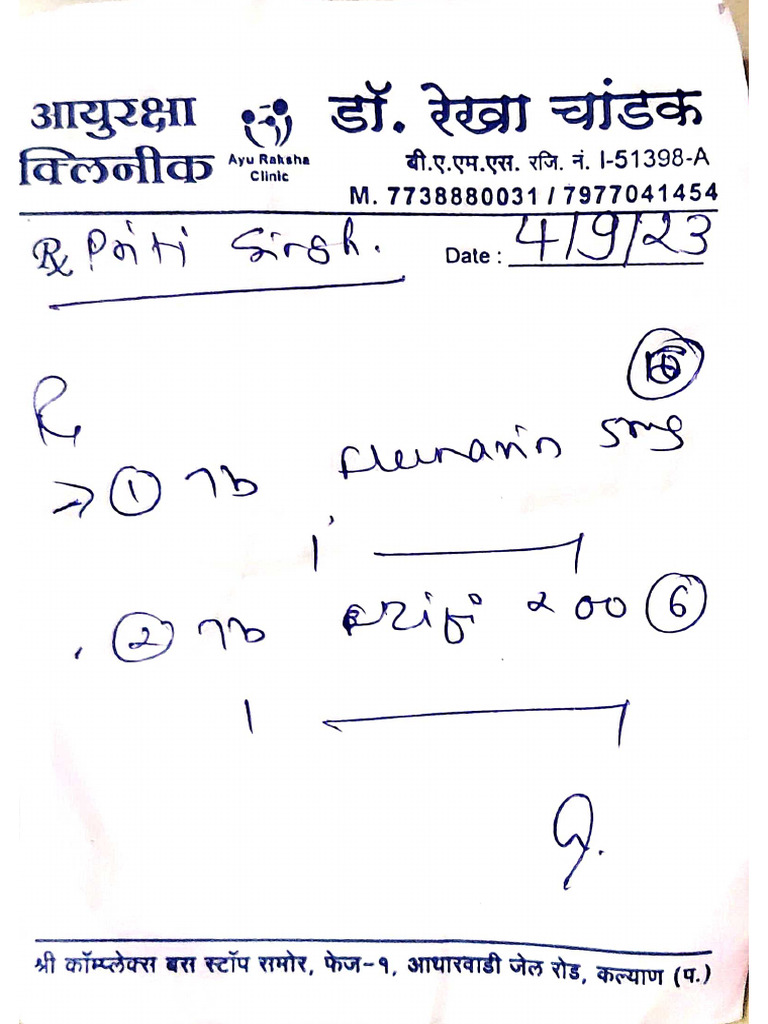 आयुरक्षा क्लिनीक
Ayu Raksha Clinic
डॉ. रेखा चांडक
बी.ए.एम.एस. रजि. नं. I-51398-A
M. 7738880031 / 7977041454
Rx Priti Singh.
Date : 4/9/23
Rx
→ ① Tb 5mg
1 — 1
② Tb 200 ⑥
1 — 1
श्री कॉम्प्लेक्स बस स्टॉप समोर, फेज-१, आधारवाडी जेल रोड, कल्याण (प.)